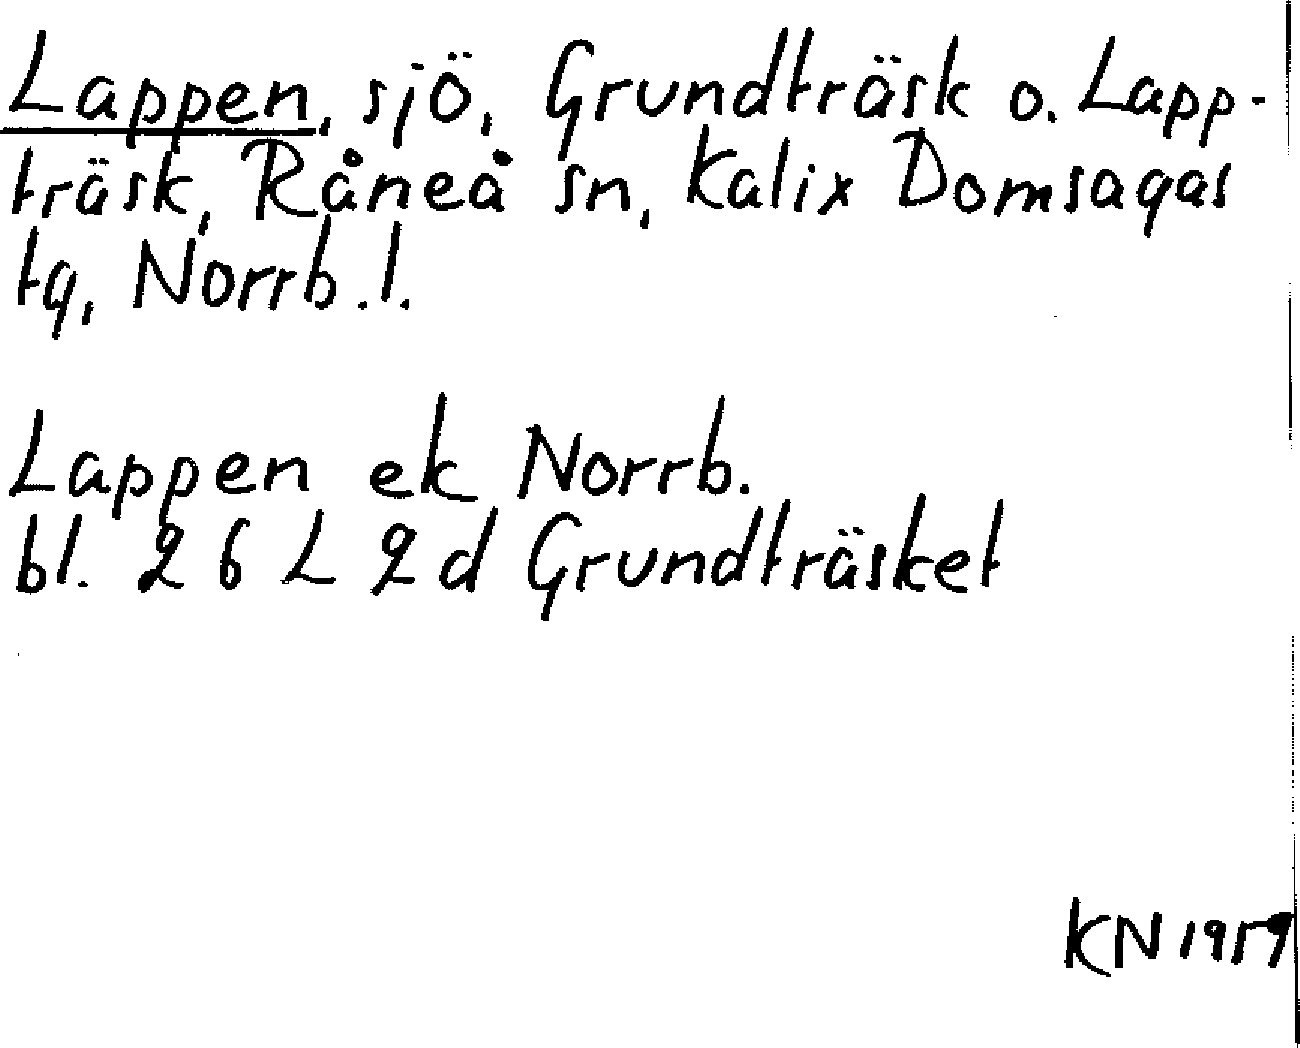 Lappen, sjö, Grundträsk o. Lapp-
träsk, Råneå sn, Kalix Domsagas
tg, Norrb.l.
Lappen ek Norrb.
bl. 26 L 2d Grundträsket
KN 1959